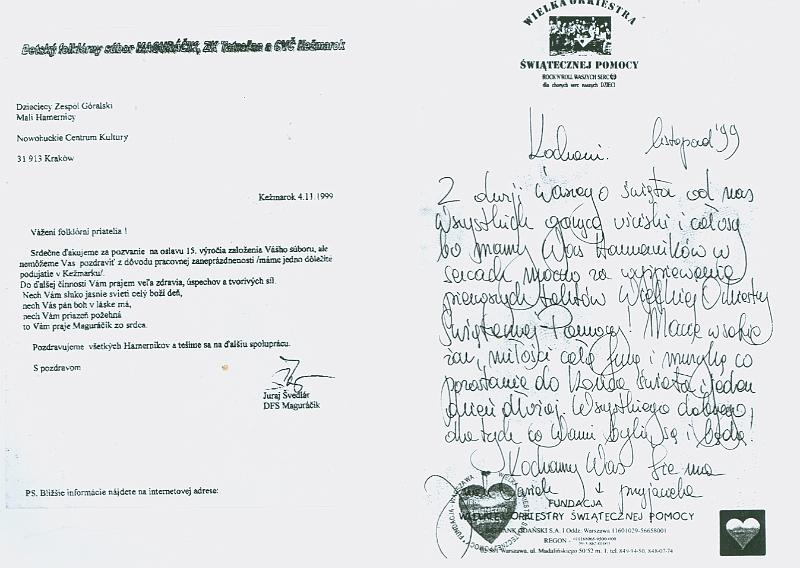 Detský folklórny súbor MAGURÁČIK, ZK Tatraľan a CVČ Kežmarok
Dziecięcy Zespol Góralski
Mali Hamernicy
Nowohuckie Centrum Kultury
31 913 Kraków
Kežmarok 4.11.1999
Vážení folklórni priatelia !
Srdečne ďakujeme za pozvanie na oslavu 15. výročia založenia Vášho súboru, ale
nemôžeme Vas pozdraviť z dôvodu pracovnej zaneprázdnenosti /máme jedno dôležité
podujatie v Kežmarku/.
Do ďalšej činnosti Vám prajem veľa zdravia, úspechov a tvorivých síl.
Nech Vám slnko jasnie svieti celý boží deň,
nech Vás pán boh v láske má,
nech Vám priazeň požehná
to Vám praje Maguráčik zo srdca.
Pozdravujeme všetkých Hamernikov a tešíme sa na ďalšiu spoluprácu.
S pozdravom
Juraj Švedlár
DFS Maguráčik
PS. Bližšie informácie nájdete na internetovej adrese:
WIELKA ORKIESTRA
ŚWIĄTECZNEJ POMOCY
ROCK'N'ROLL WASZYCH SERC
dla chorych serc naszych DZIECI
Kochani. listopad '99
Z okazji Waszego święta od nas
wszystkich gorące uściski i całusy
bo mamy Was Hamerników w
sercach mocno za wyśpiewanie
pierwszych taktów Wielkiej Orkiestry
Świątecznej Pomocy! Macie w sobie
żar, miłości całe fury i muzykę co
pozostanie do końca świata i jeden
dzień dłużej. Wszystkiego dobrego
dla tych co Wami byli, są i będą!
Kochamy Was
przyjaciele
FUNDACJA
WIELKIEJ ORKIESTRY ŚWIĄTECZNEJ POMOCY
BANK GDAŃSKI S.A. I Oddz. Warszawa 11601029-56658001
REGON -
02-501 Warszawa, ul. Madalińskiego 50/52 m. 1, tel. 849-94-50, 848-07-74